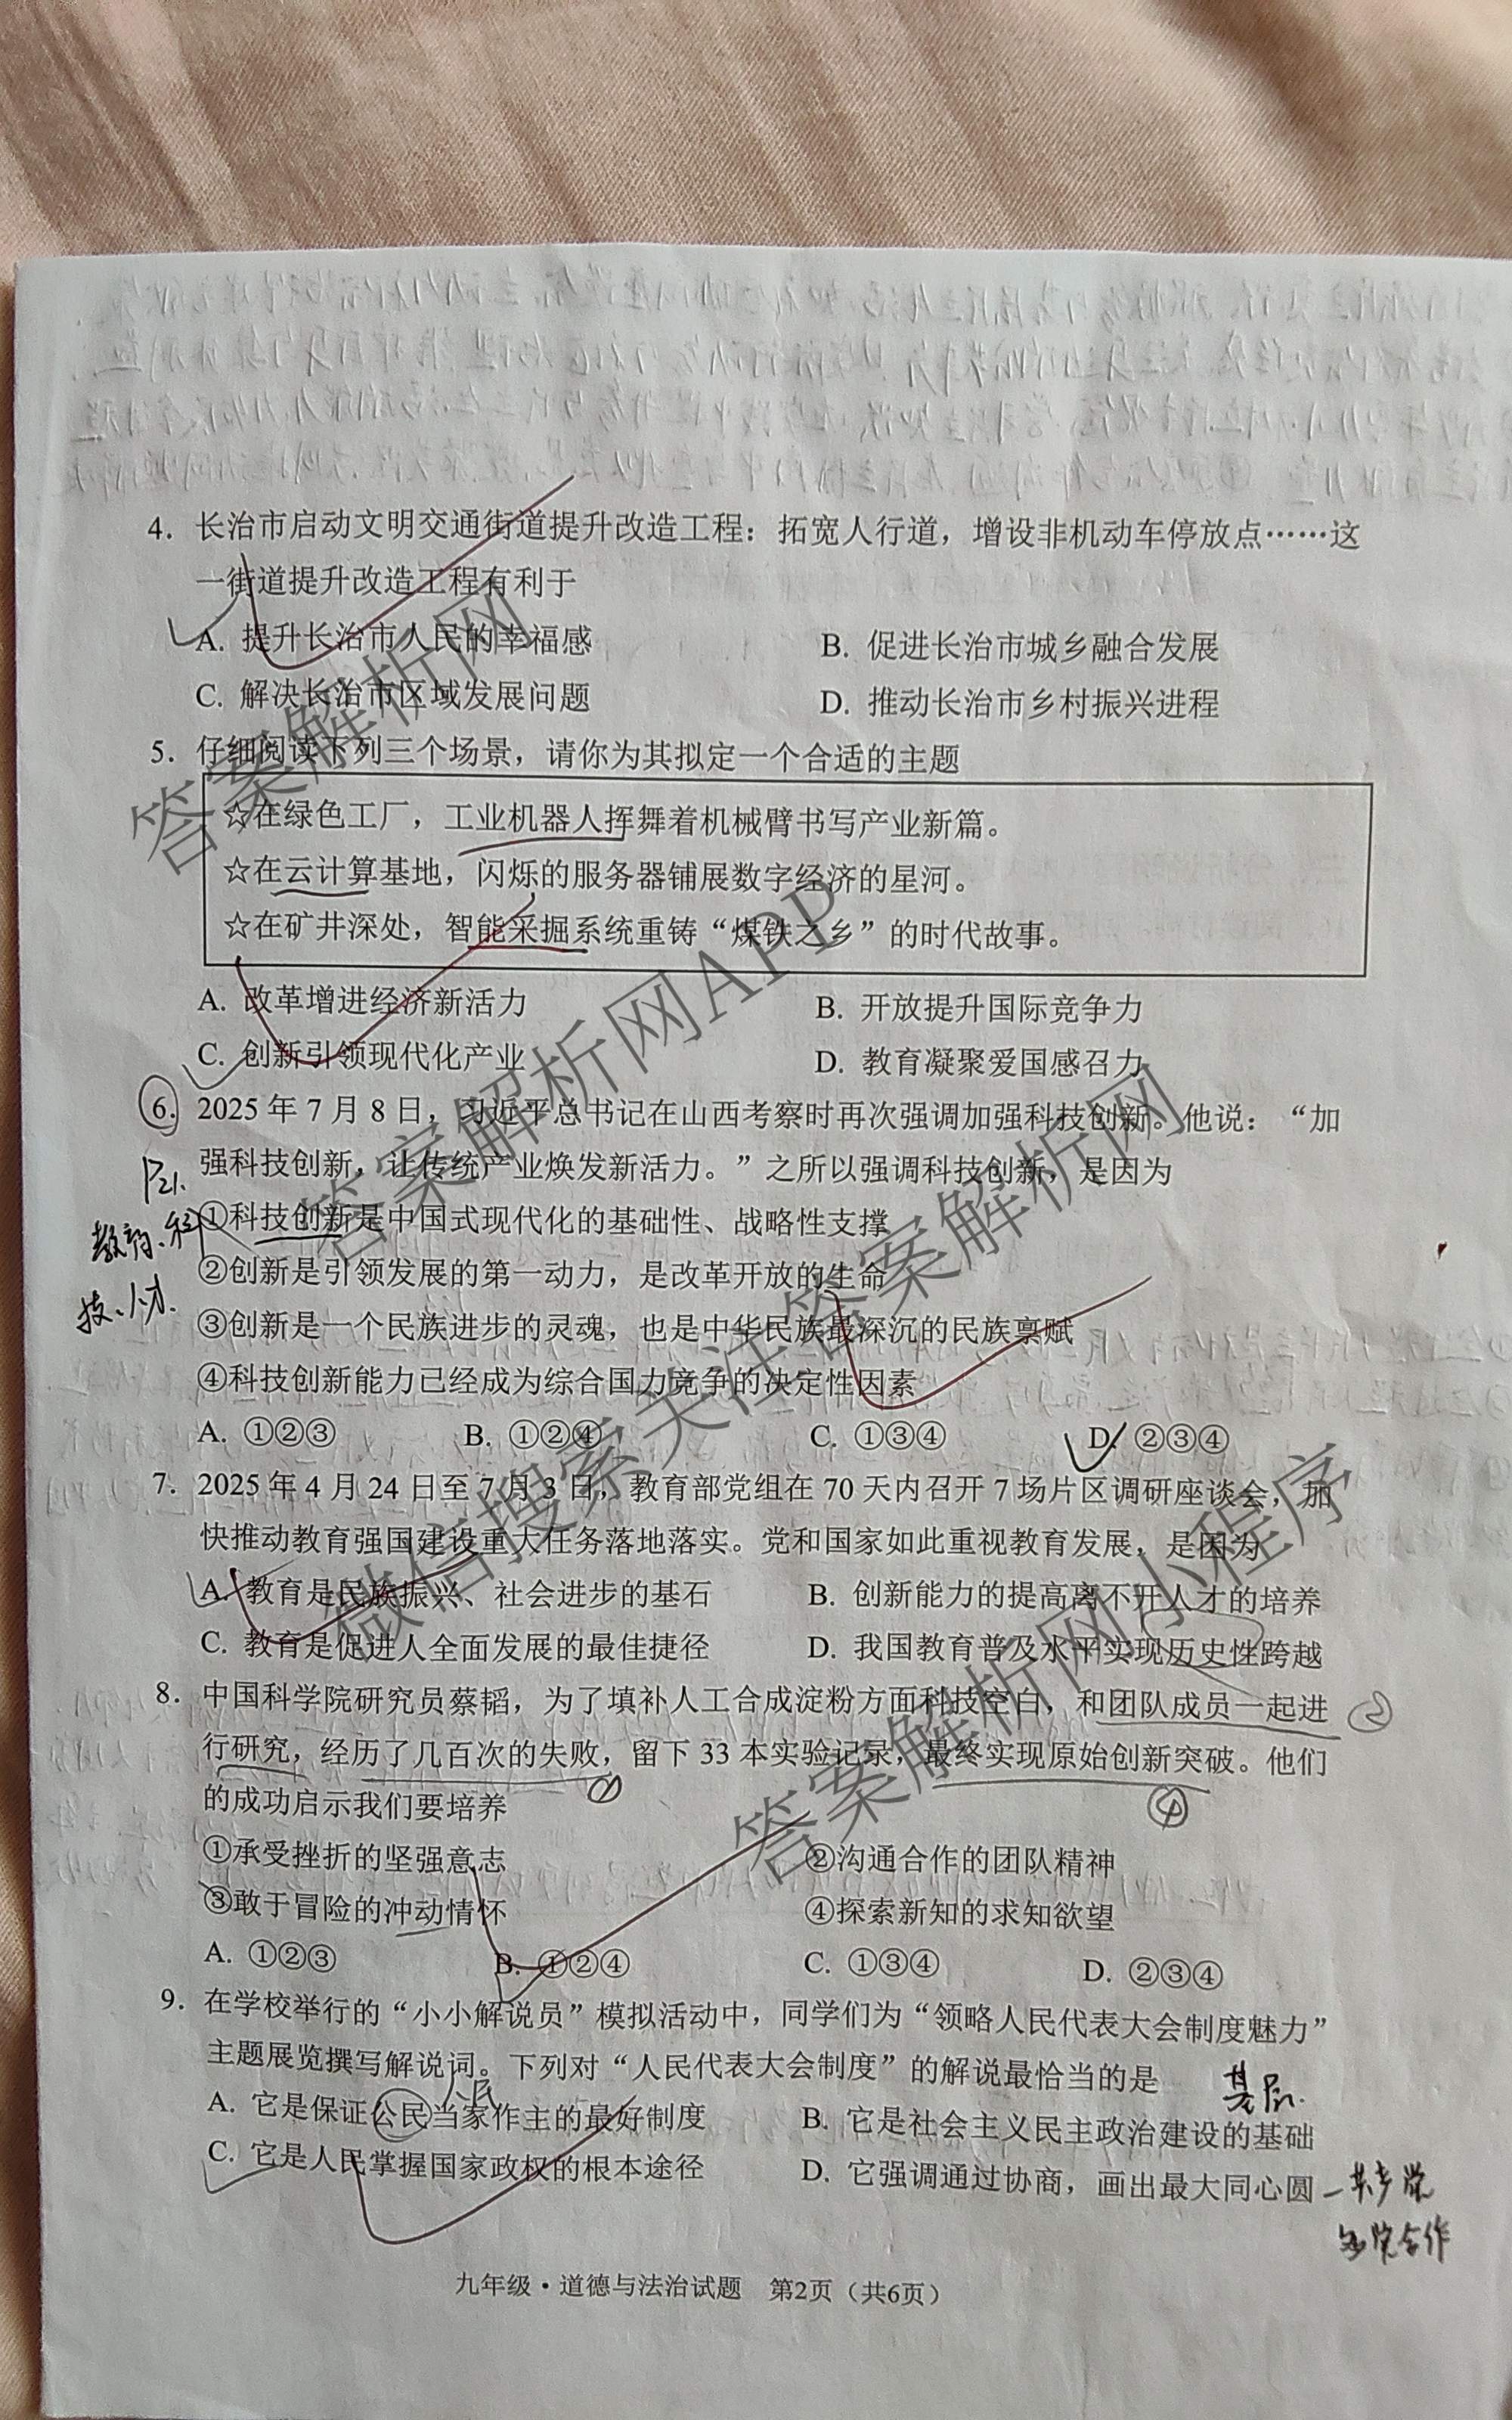 4. 长治市启动文明交通街道提升改造工程：拓宽人行道，增设非机动车停放点……这
一街道提升改造工程有利于
A. 提升长治市人民的幸福感 B. 促进长治市城乡融合发展
C. 解决长治市区域发展问题 D. 推动长治市乡村振兴进程
5. 仔细阅读下列三个场景，请你为其拟定一个合适的主题
☆在绿色工厂，工业机器人挥舞着机械臂书写产业新篇。
☆在云计算基地，闪烁的服务器铺展数字经济的星河。
☆在矿井深处，智能采掘系统重铸“煤铁之乡”的时代故事。
A. 改革增进经济新活力 B. 开放提升国际竞争力
C. 创新引领现代化产业 D. 教育凝聚爱国感召力
6. 2025年7月8日，习近平总书记在山西考察时再次强调加强科技创新。他说：“加
强科技创新，让传统产业焕发新活力。”之所以强调科技创新，是因为
P21.
教育、科
技、人才.
①科技创新是中国式现代化的基础性、战略性支撑
②创新是引领发展的第一动力，是改革开放的生命
③创新是一个民族进步的灵魂，也是中华民族最深沉的民族禀赋
④科技创新能力已经成为综合国力竞争的决定性因素
A. ①②③ B. ①②④ C. ①③④ D. ②③④
7. 2025年4月24日至7月3日，教育部党组在70天内召开7场片区调研座谈会，加
快推动教育强国建设重大任务落地落实。党和国家如此重视教育发展，是因为
A. 教育是民族振兴、社会进步的基石 B. 创新能力的提高离不开人才的培养
C. 教育是促进人全面发展的最佳捷径 D. 我国教育普及水平实现历史性跨越
8. 中国科学院研究员蔡韬，为了填补人工合成淀粉方面科技空白，和团队成员一起进 ②
行研究，经历了几百次的失败，留下33本实验记录，最终实现原始创新突破。他们
① ④
的成功启示我们要培养
①承受挫折的坚强意志 ②沟通合作的团队精神
③敢于冒险的冲动情怀 ④探索新知的求知欲望
A. ①②③ B. ①②④ C. ①③④ D. ②③④
9. 在学校举行的“小小解说员”模拟活动中，同学们为“领略人民代表大会制度魅力”
主题展览撰写解说词。下列对“人民代表大会制度”的解说最恰当的是
人民 基层.
A. 它是保证公民当家作主的最好制度 B. 它是社会主义民主政治建设的基础
C. 它是人民掌握国家政权的根本途径 D. 它强调通过协商，画出最大同心圆
九年级·道德与法治试题 第2页（共6页）
答案解析网
答案解析网APP
微信搜索关注答案解析网
答案解析网小程序